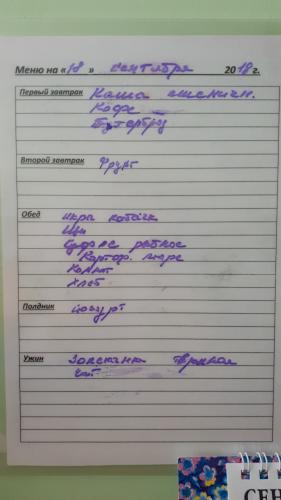 Меню на «18» сентября 2018 г.
Первый завтрак Каша пшеничн.
Кофе
Бутербрд
Второй завтрак Фрукт
Обед икра кабачк
Щи
Суфле рыбное
Картоф. пюре
Компот
Хлеб
Полдник йогурт
Ужин Запеканка
чай
СЕН